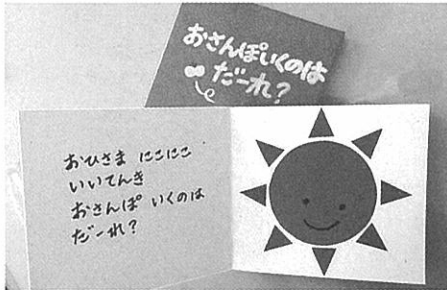 おさんぽいくのは
だーれ?
おひさま にこにこ
いいてんき
おさんぽ いくのは
だーれ?